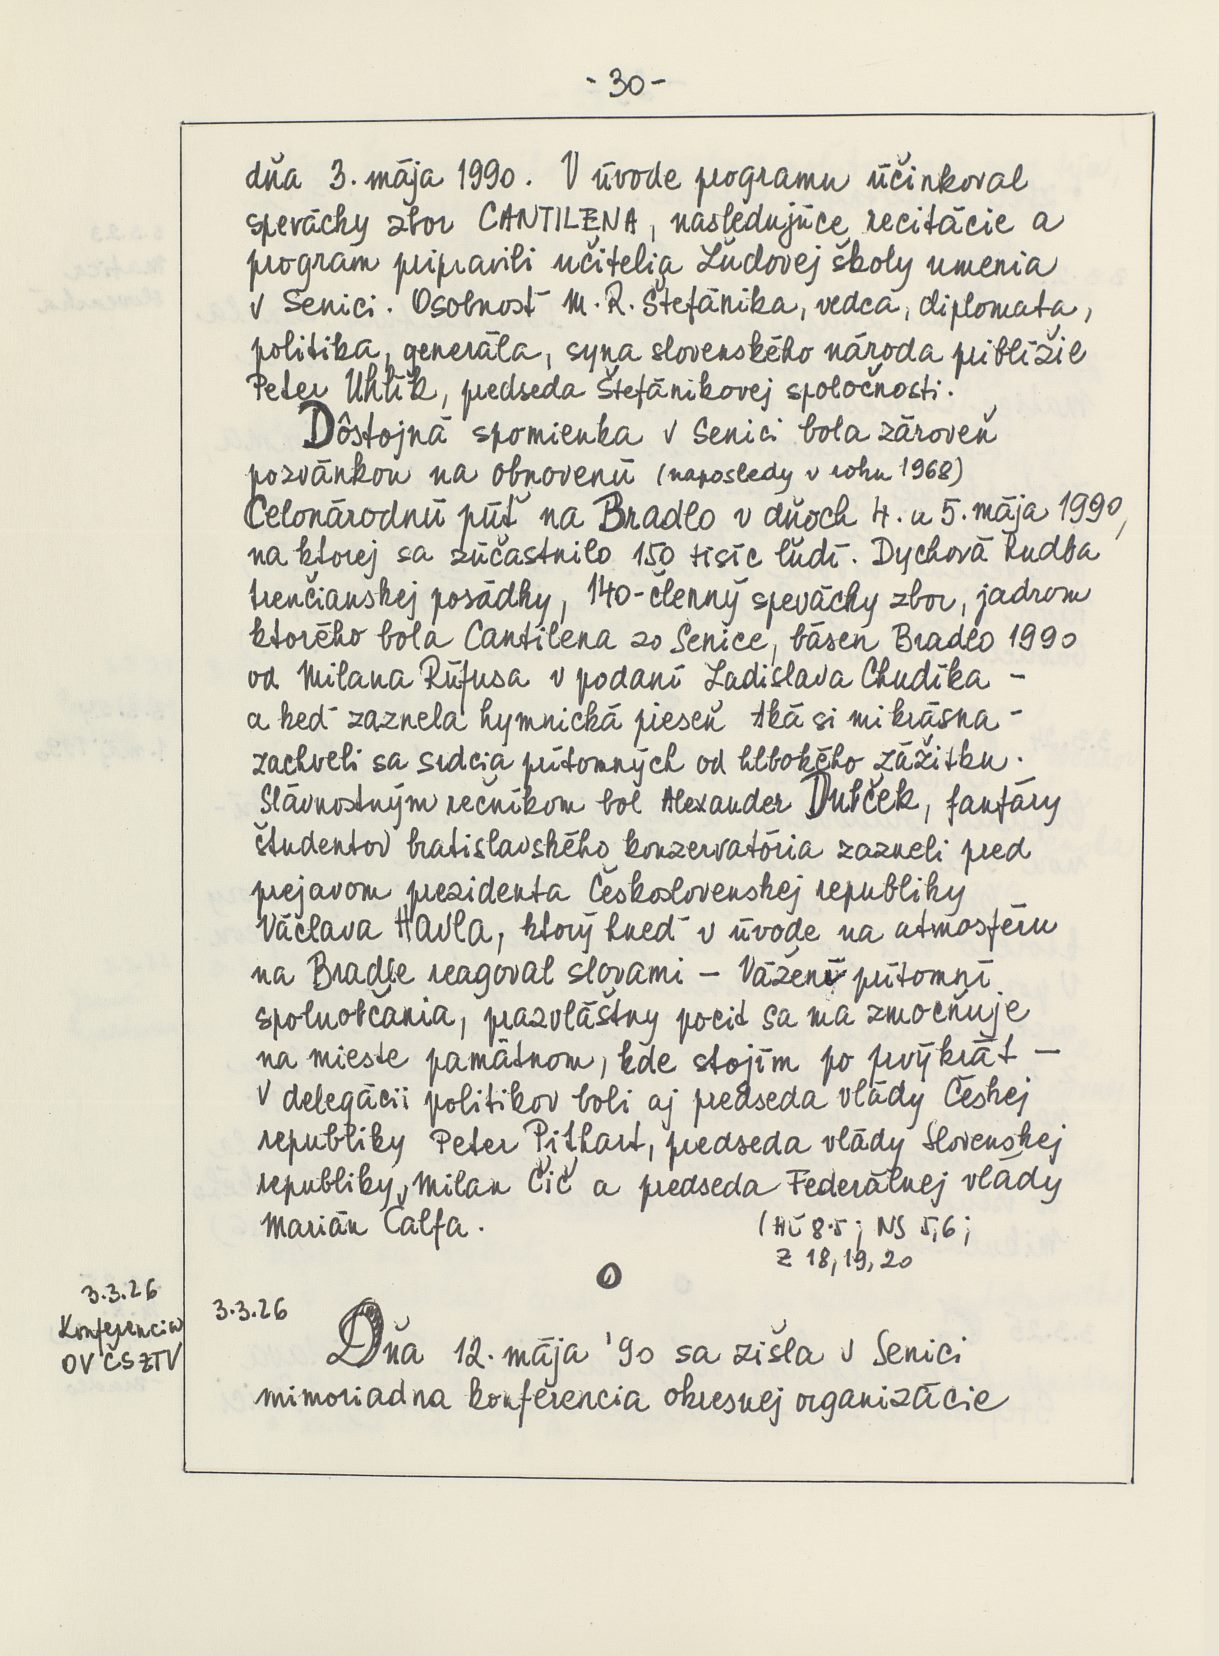 - 30 -
dňa 3. mája 1990. V úvode programu účinkoval
spevácky zbor CANTILENA, nasledujúce recitácie a
program pripravili učitelia Ľudovej školy umenia
v Senici. Osobnosť M. R. Štefánika, vedca, diplomata,
politika, generála, syna slovenského národa priblížil
Peter Uhlík, predseda Štefánikovej spoločnosti.
Dôstojná spomienka v Senici bola zároveň
pozvánkou na obnovenú (naposledy v roku 1968)
Celonárodnú púť na Bradlo v dňoch 4. a 5. mája 1990,
na ktorej sa zúčastnilo 150 tisíc ľudí. Dychová hudba
trenčianskej posádky, 140-členný spevácky zbor, jadrom
ktorého bola Cantilena zo Senice, báseň Bradlo 1990
od Milana Rúfusa v podaní Ladislava Chudíka -
a keď zaznela hymnická pieseň Aká si mi krásna -
zachveli sa srdcia prítomných od hlbokého zážitku.
Slávnostným rečníkom bol Alexander Dubček, fanfáry
študentov bratislavského konzervatória zazneli pred
prejavom prezidenta Československej republiky
Václava HAVLA, ktorý hneď v úvode na atmosféru
na Bradle reagoval slovami – Vážení prítomní
spoluobčania, prazvláštny pocit sa ma zmocňuje
na mieste pamätnom, kde stojím po prvýkrát –
V delegácii politikov boli aj predseda vlády Českej
republiky Peter Pithart, predseda vlády Slovenskej
republiky, Milan Čič a predseda Federálnej vlády
Marián Čalfa.
(HĽ 8.5; NS 5,6;
Z 18, 19, 20
3.3.26
Konferencia
OV ČSZTV
3.3.26
Dňa 12. mája '90 sa zišla v Senici
mimoriadna konferencia okresnej organizácie